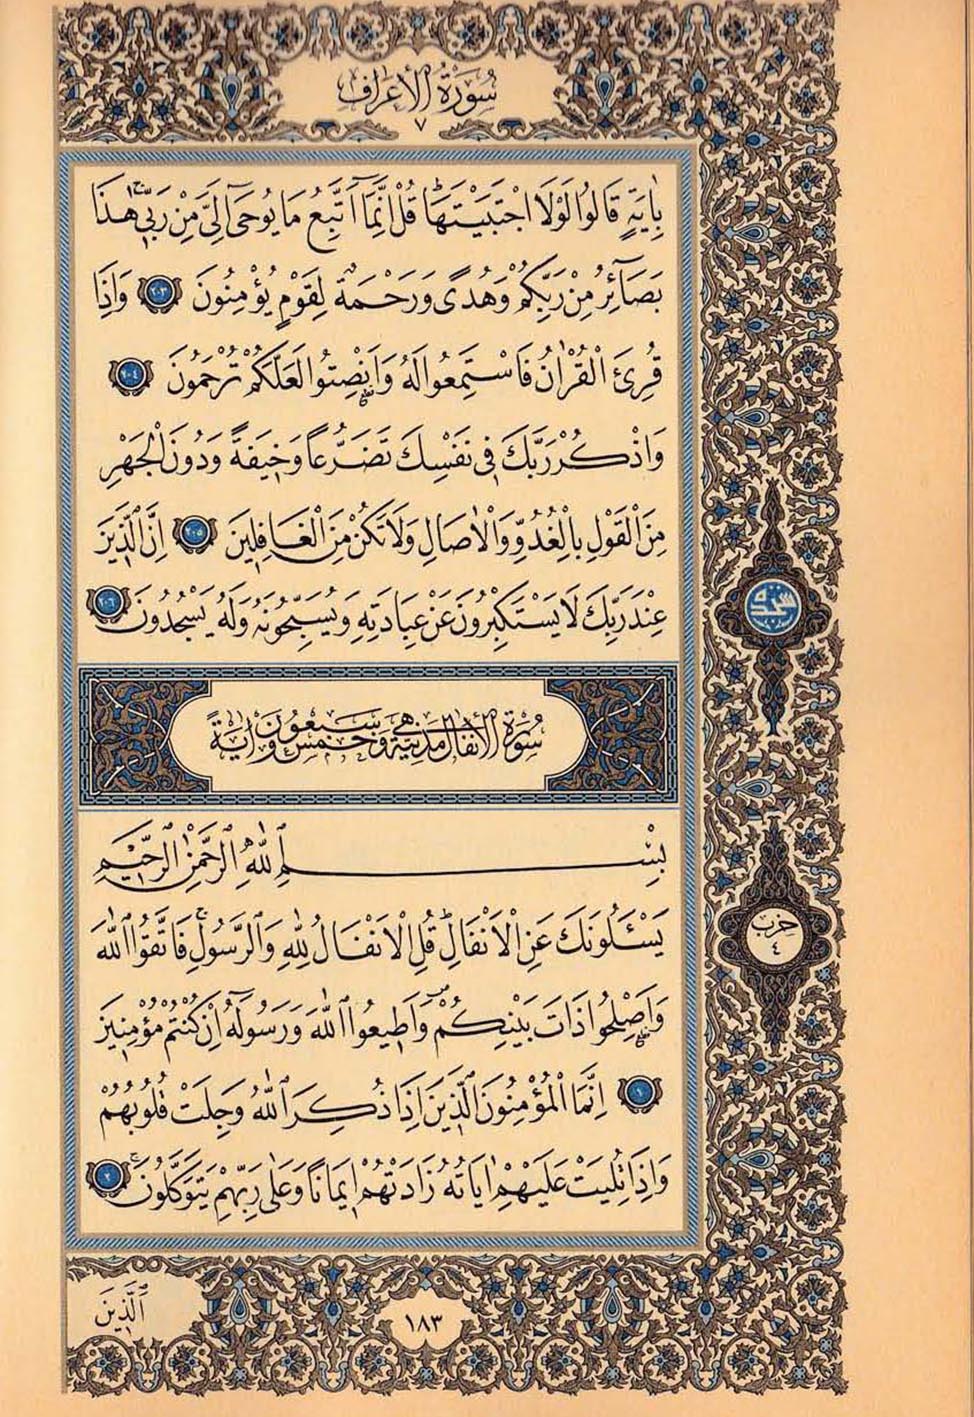 سُورَةُ الْأَعْرَافِ
٧
بِاٰيَةٍ قَالُوا لَوْلَا اجْتَبَيْتَهَاۜ قُلْ اِنَّمَٓا اَتَّبِعُ مَا يُوحٰٓى اِلَيَّ مِنْ رَبّ۪يۚ هٰذَا
بَصَٓائِرُ مِنْ رَبِّكُمْ وَهُدًى وَرَحْمَةٌ لِقَوْمٍ يُؤْمِنُونَ ﴿٢٠٣﴾ وَاِذَا
قُرِئَ الْقُرْاٰنُ فَاسْتَمِعُوا لَهُ وَاَنْصِتُوا لَعَلَّكُمْ تُرْحَمُونَ ﴿٢٠٤﴾
وَاذْكُرْ رَبَّكَ ف۪ي نَفْسِكَ تَضَرُّعًا وَخ۪يفَةً وَدُونَ الْجَهْرِ
مِنَ الْقَوْلِ بِالْغُدُوِّ وَالْاٰصَالِ وَلَا تَكُنْ مِنَ الْغَافِل۪ينَ ﴿٢٠٥﴾ اِنَّ الَّذ۪ينَ
عِنْدَ رَبِّكَ لَا يَسْتَكْبِرُونَ عَنْ عِبَادَتِه۪ وَيُسَبِّحُونَهُ وَلَهُ يَسْجُدُونَ ﴿٢٠٦﴾
سجده
سُورَةُ الْأَنْفَالِ مَدَنِيَّةٌ وَهِيَ خَمْسٌ وَسَبْعُونَ اٰيَةً
بِسْمِ اللّٰهِ الرَّحْمٰنِ الرَّح۪يمِ
يَسْـَٔلُونَكَ عَنِ الْاَنْفَالِۜ قُلِ الْاَنْفَالُ لِلّٰهِ وَالرَّسُولِۚ فَاتَّقُوا اللّٰهَ
حزب
٤
وَاَصْلِحُوا ذَاتَ بَيْنِكُمْۖ وَاَط۪يعُوا اللّٰهَ وَرَسُولَهُٓ اِنْ كُنْتُمْ مُؤْمِن۪ينَ
﴿١﴾ اِنَّمَا الْمُؤْمِنُونَ الَّذ۪ينَ اِذَا ذُكِرَ اللّٰهُ وَجِلَتْ قُلُوبُهُمْ
وَاِذَا تُلِيَتْ عَلَيْهِمْ اٰيَاتُهُ زَادَتْهُمْ ا۪يمَانًا وَعَلٰى رَبِّهِمْ يَتَوَكَّلُونَۚ ﴿٢﴾
اَلَّذ۪ينَ
١٨٣